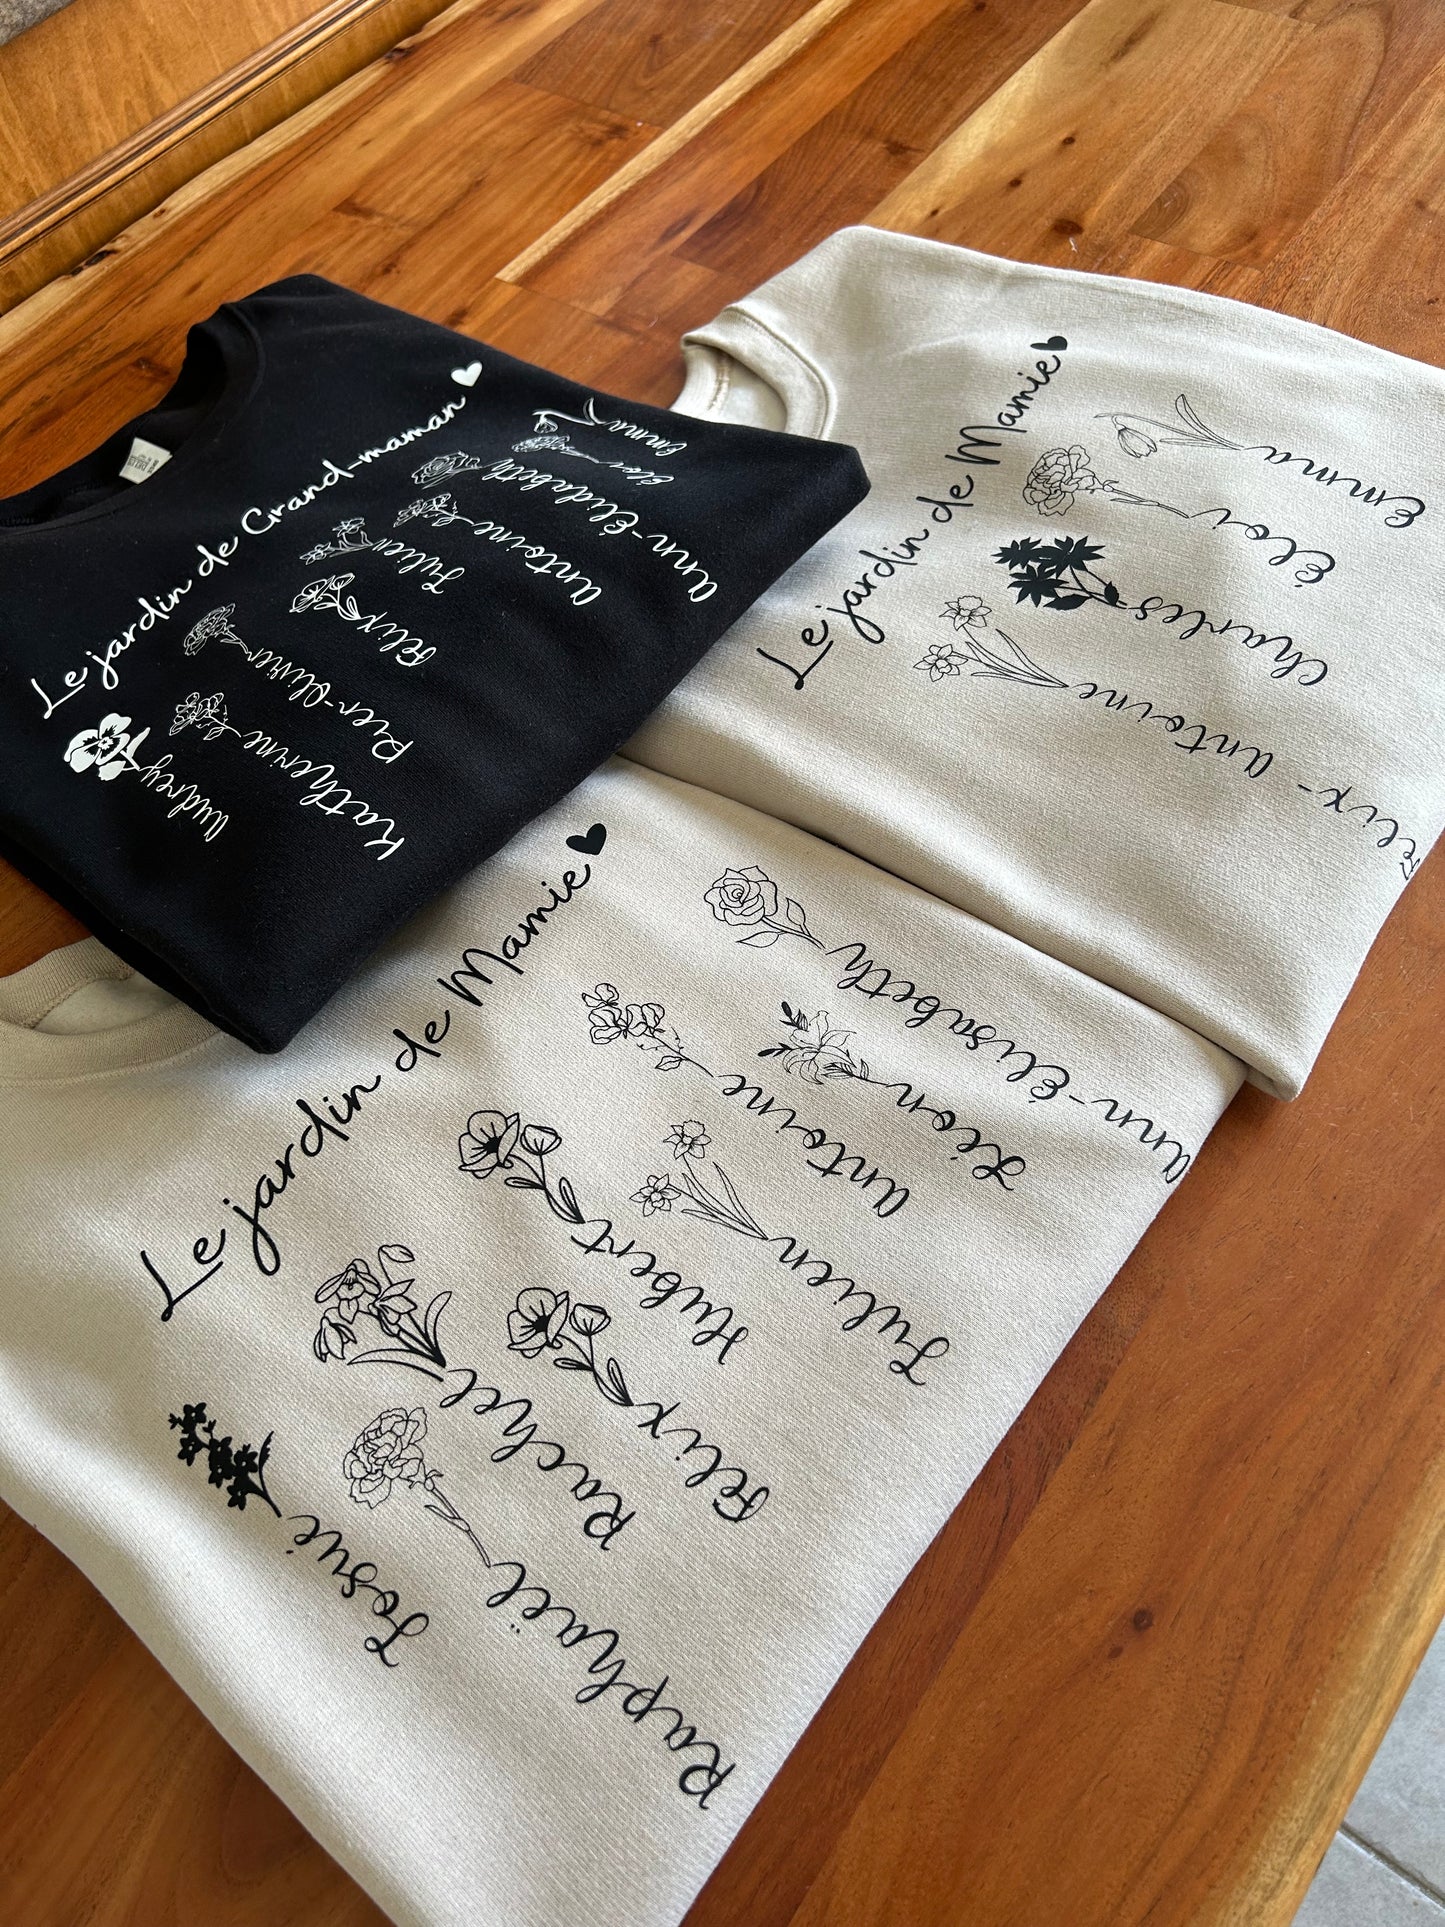 Le jardin de Grand-maman
Audrey
Katherine
Pier-Olivier
Félix
Julien
Antoine
Ann-Élisabeth
Éloi
Emma
Le jardin de Mamie
Félix-Antoine
Charles
Éloi
Emma
Le jardin de Mamie
Josué
Raphaël
Rachel
Félix
Hubert
Julien
Antoine
Léon
Ann-Élisabeth